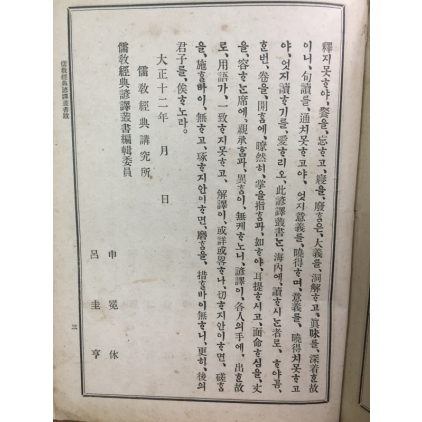 釋치못ᄒᆞ야, 餐을, 忘ᄒᆞ고, 寢을, 廢ᄒᆞᆷ은, 大義를, 洞解ᄒᆞ고, 眞味를, 深着ᄒᆞᆫ故
이니, 句讀를, 通치못ᄒᆞ고야, 엇지意義를, 曉得ᄒᆞ며, 意義를, 曉得치못ᄒᆞ고
야, 엇지讀ᄒᆞ기를, 愛ᄒᆞ리오, 此諺譯叢書ᄂᆞᆫ, 海內에, 讀ᄒᆞ시ᄂᆞᆫ者로, ᄒᆞ야곰,
ᄒᆞᆫ번, 卷을, 開ᄒᆞᆷ에, 瞭然히, 掌을指ᄒᆞᆷ과, 如ᄒᆞ야, 耳提ᄒᆞ시고, 面命ᄒᆞ심을, 丈
을, 容ᄒᆞᄂᆞᆫ席에, 親承ᄒᆞᆷ과, 異ᄒᆞᆷ이, 無케ᄒᆞ노니, 諺譯이, 各人의手에, 出ᄒᆞᆫ故
로, 用語가, 一致ᄒᆞ지못ᄒᆞ고, 解譯이, 或詳或畧ᄒᆞ나, 切ᄒᆞ지안이ᄒᆞ면, 磋ᄒᆞᆷ
을, 施ᄒᆞᆯ바이, 無ᄒᆞ고, 琢ᄒᆞ지안이ᄒᆞ면, 磨ᄒᆞᆷ을, 措ᄒᆞᆯ바이無ᄒᆞ니, 更히, 後의
君子를, 俟ᄒᆞ노라.
大正十二年 月 日
儒敎經典講究所
儒敎經典諺譯叢書編輯委員
申冕休
呂圭亨
儒敎經典諺譯叢書政
三